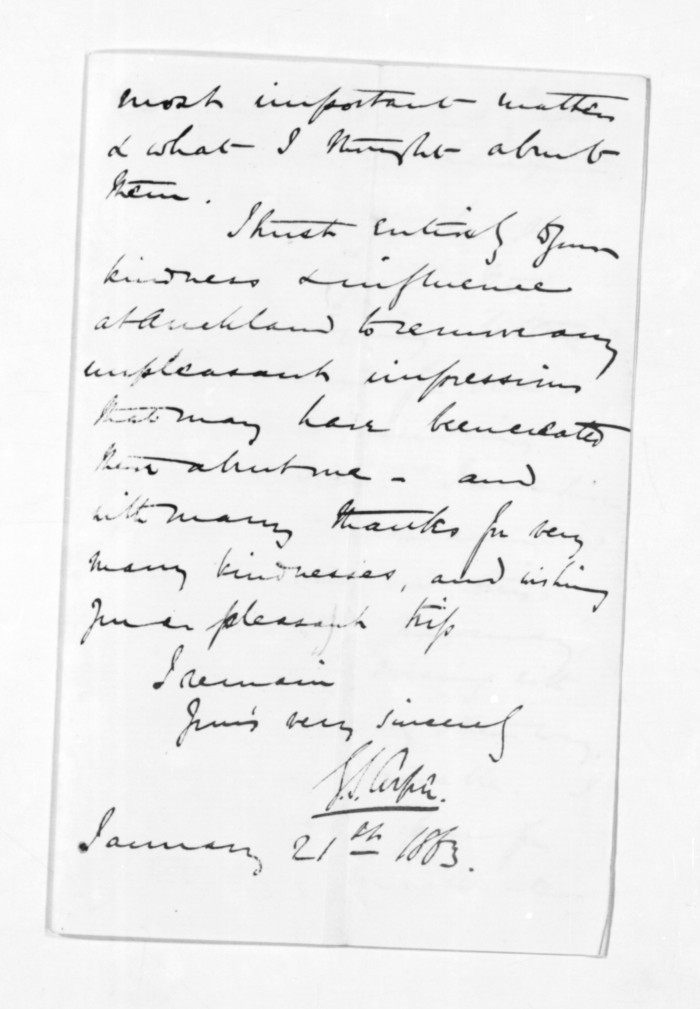 most important matters
& what I thought about
them.
I trust entirely to your
kindness & influence
at Auckland to remove any
unpleasant impressions
that may have been created
there about me - and
with many thanks for very
many kindnesses, and wishing
you a pleasant trip
I remain
Yours very sincerely
G.S. Cooper.
January 21st 1863.